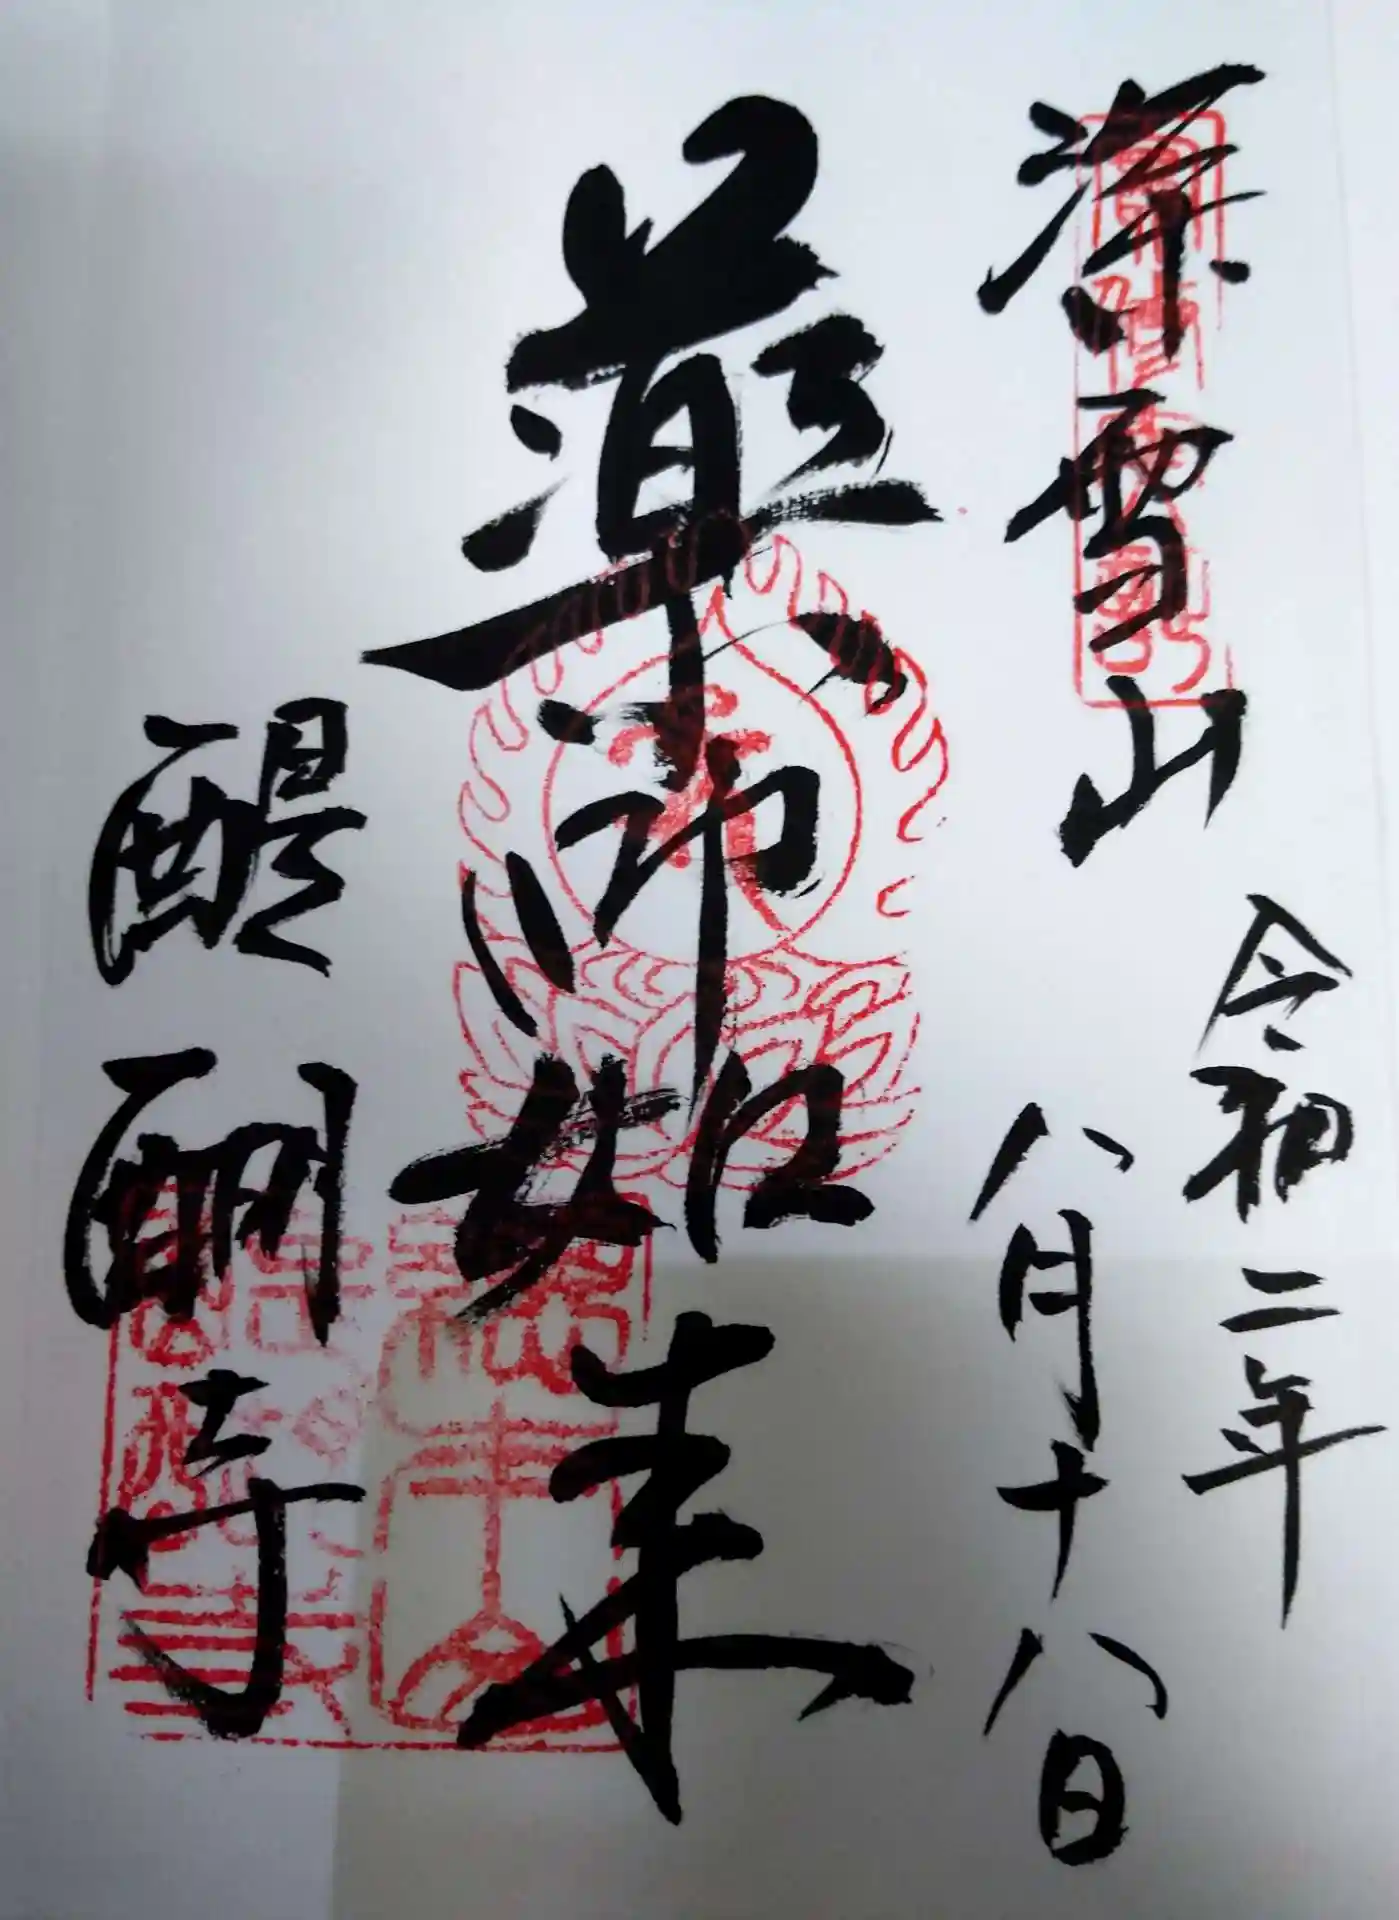 深雪山
令和二年
八月十八日
薬師如来
醍醐寺